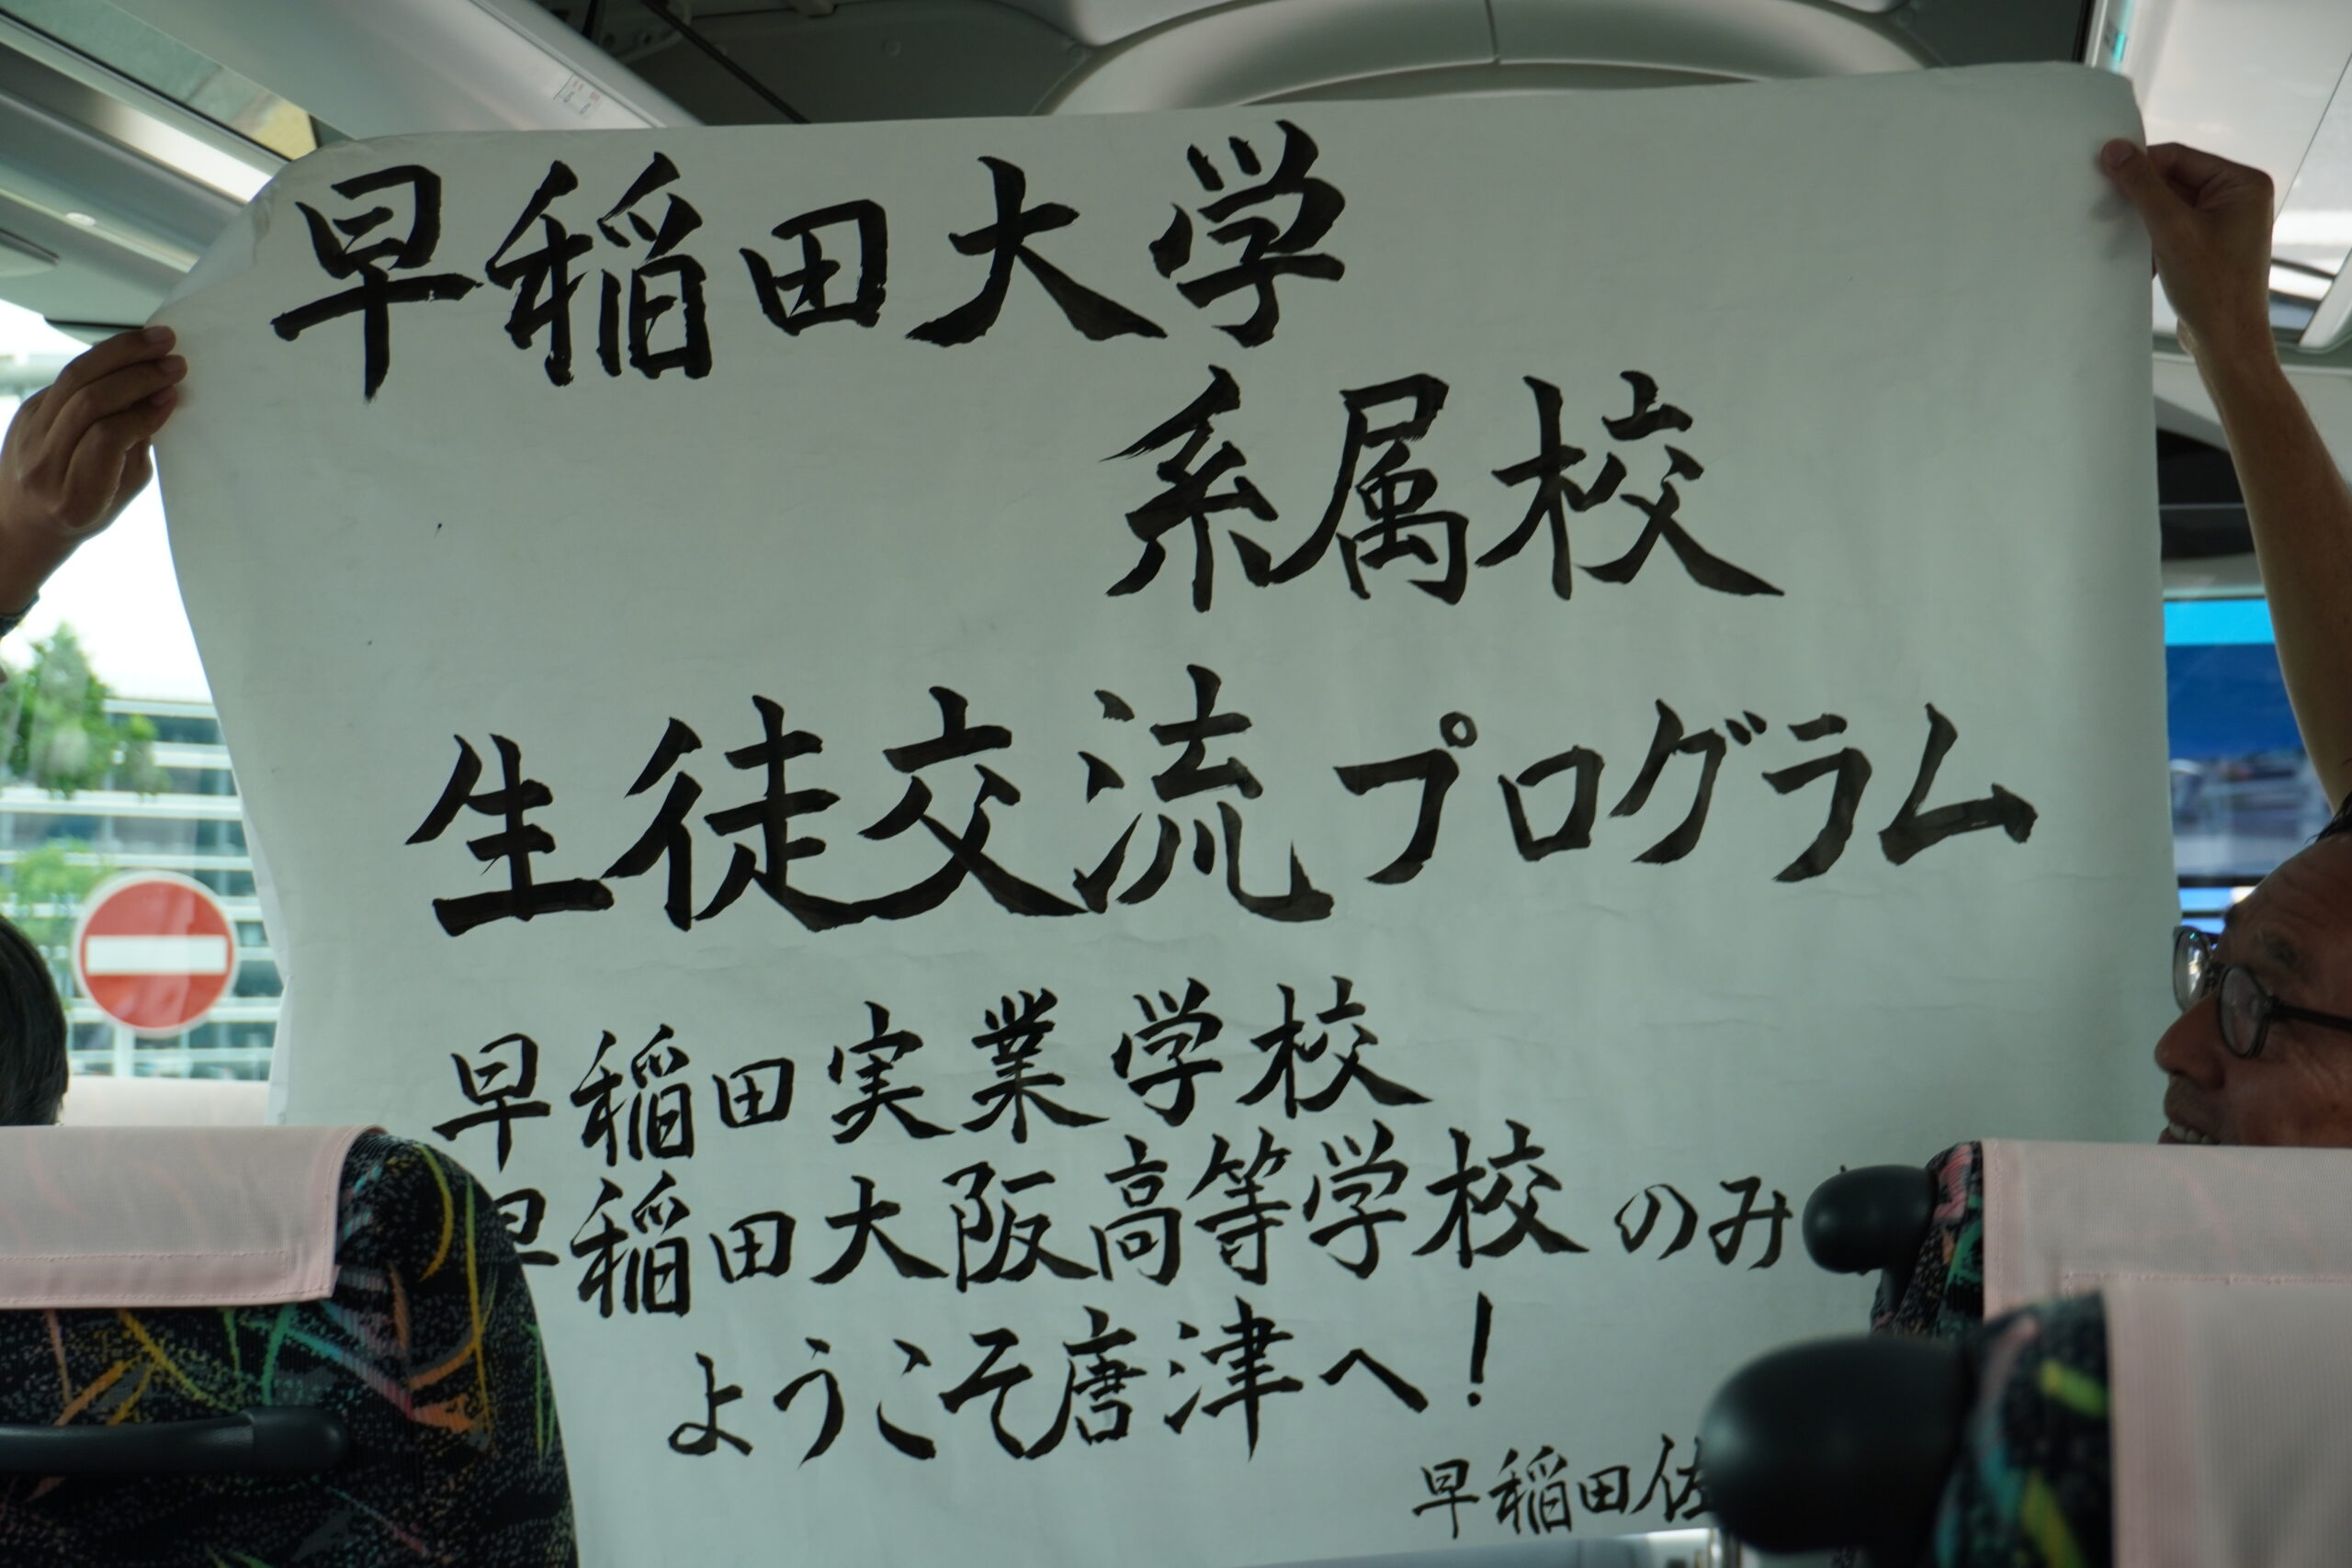 早稲田大学
系属校
生徒交流プログラム
早稲田実業学校
早稲田大阪高等学校のみ
ようこそ唐津へ!
早稲田佐